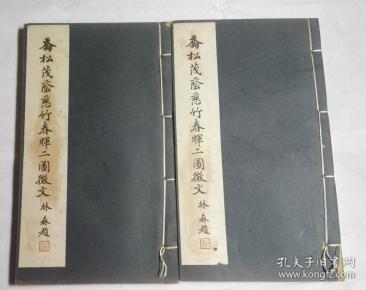 喬松茂蔭慈竹春暉二圖徵文
林森題
喬松茂蔭慈竹春暉二圖徵文
林森題
孔夫子旧书网
kongfz.com